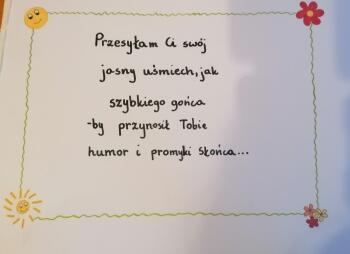 Przesyłam Ci swój
jasny uśmiech, jak
szybkiego gońca
-by przynosił Tobie
humor i promyki słońca...